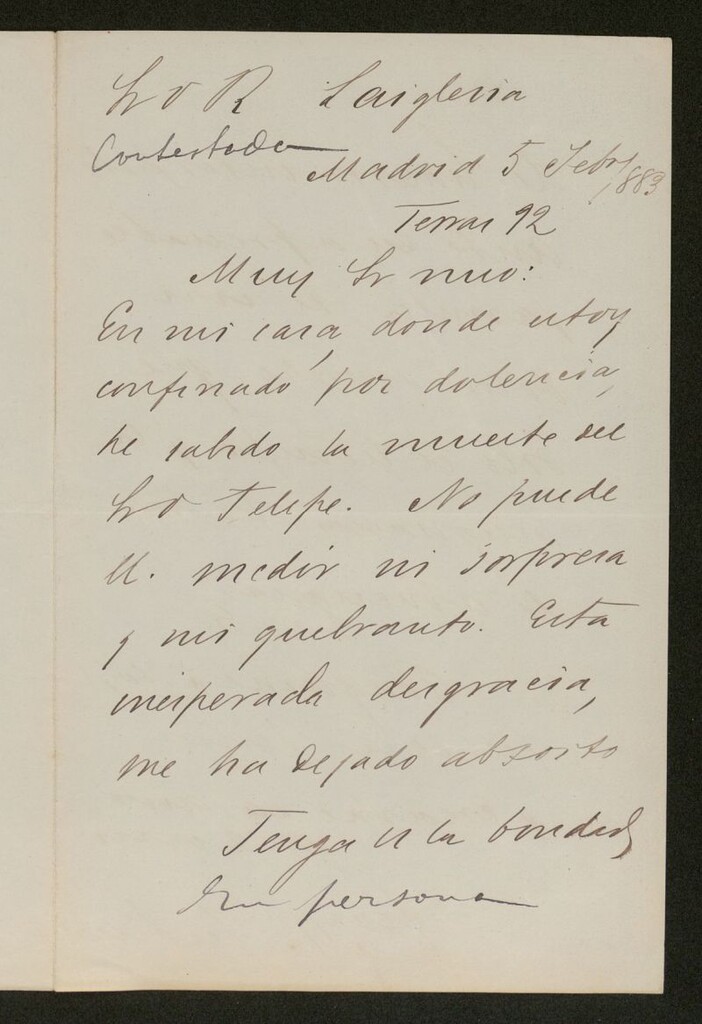 Sr D R Laiglesia
Contestada
Madrid 5 Febr 1883
92
Muy Sr mio:
En mi casa, donde estoy
confinado por dolencia,
he sabido la muerte del
Sr D Felipe. No puede
U. medir mi sorpresa
y mi quebranto. Esta
inesperada desgracia,
me ha dejado absorto
Tenga U la bondad
En persona